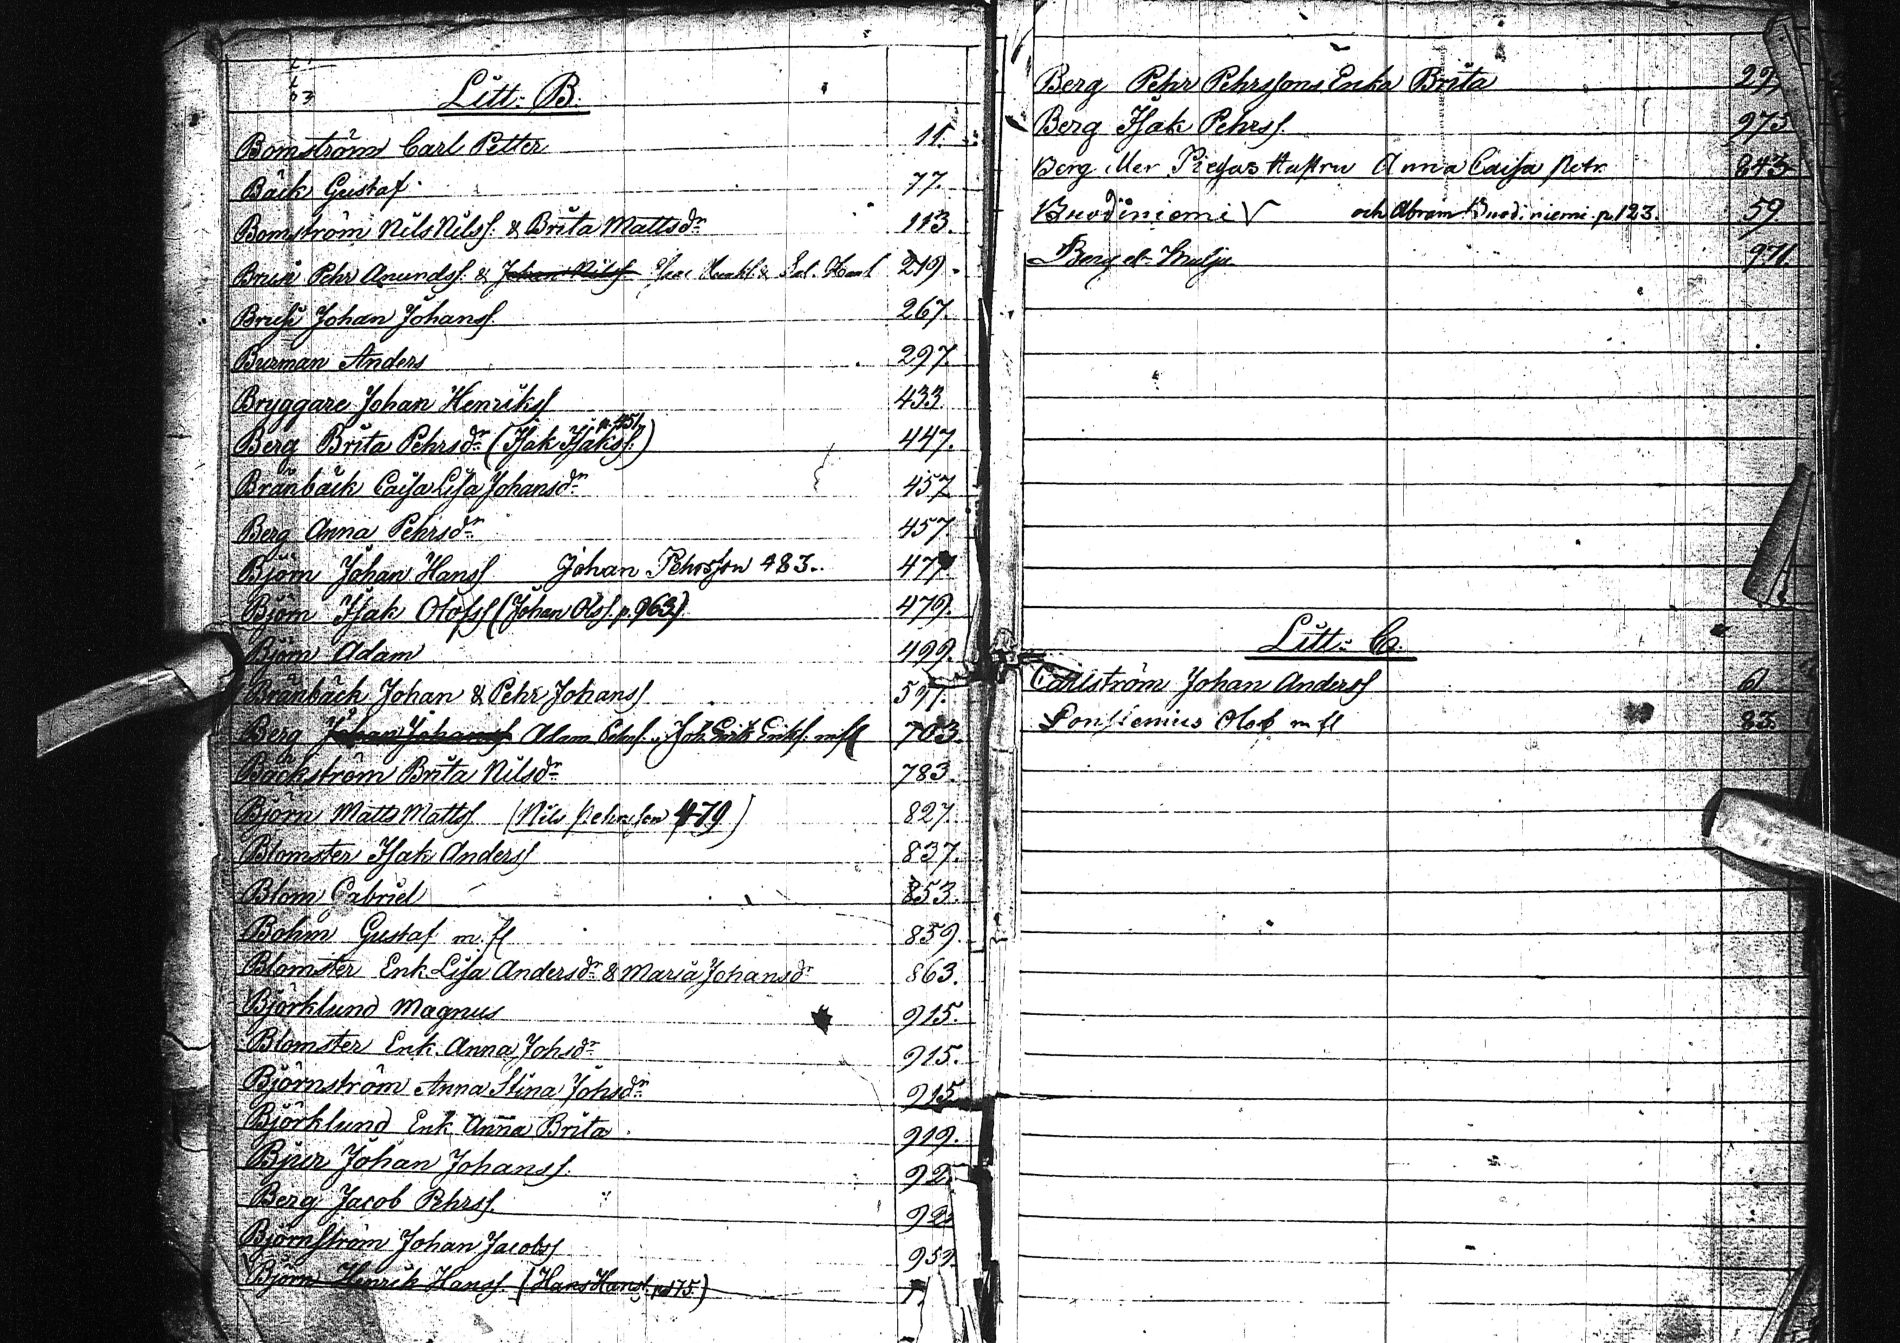 Litt: B.
Bomström Carl Petter 11.
Bäck Gustaf. 77.
Bomström Nils Nilss. & Brita Mattsdr 113.
Brun Pehr Anundss. & Johan Nilss. 219.
Bruse Johan Johanss. 267.
Burman Anders 297.
Bryggare Johan Henrikss 433.
Berg Brita Pehrsdr (Isak Isakss. p. 451) 447.
Brånbäck Caisa Lisa Johansdr 457
Berg Anna Pehrsdr 457.
Björn Johan Hanss Johan Pehrsson 483. 477
Björn Isak Olofss (Johan Olss. p. 963) 479.
Björn Adam 499.
Brånbäck Johan & Pehr Johanss 597.
Berg Johan Johanss Adam Joh Erik Erikss. mfl 703.
Bäckström Brita Nilsdr 783.
Björn Matts Mattss (Nils Pehrsson 479) 827.
Blomster Isak Anderss 837.
Blom Gabriel 853.
Bohm Gustaf m. fl 859.
Blomster Enk Lisa Andersdr & Maria Johansdr 863.
Björklund Magnus 915.
Blomster Enk. Anna Johsdr 915.
Björnström Anna Stina Johsdr 915
Björklund Enk Anna Brita 919.
Bjur Johan Johanss. 92
Berg Jacob Pehrss. 92
Björnström Johan Jacobss 959.
Björn Henrik Hanss. (Hans Hanss. p 175.)
Berg Pehr Pehrssons Enka Brita 29
Berg Isak Pehrss. 975
Berg Hustru Anna Caisa Petr. 843
Buodiniemi och Abram Buodiniemi p 123. 59
Berg 971.
Litt: C.
Carlström Johan Anderss 61
Consienius Olof m fl 83.